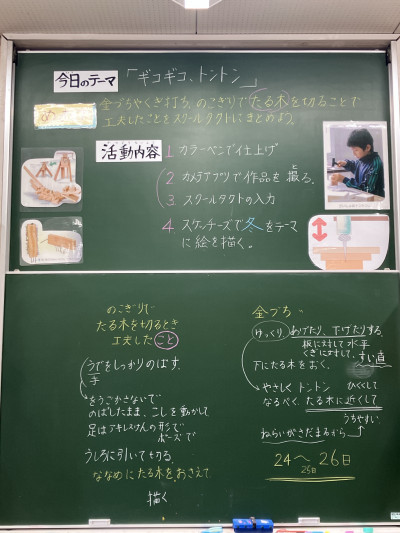 今日のテーマ 「ギコギコ、トントン」
金づちやくぎ打ち、のこぎりでたる木を切ることで
工夫したことをスクールタクトにまとめよう。
活動内容
1 カラーペンで仕上げ
2 カメラアプリで作品を撮る。
3 スクールタクトの入力
4 スケッチーズで冬をテーマ
に絵を描く。
のこぎりで
たる木を切るとき
工夫したこと
うでをしっかりのばす。
手
をうごかさないで
のばしたまま、こしを動かして
足はアキレスけんの形で
ポーズで
うしろに引いて切る。
ななめにたる木をおさえて
描く
金づち
ゆっくりあげたり、下げたりする
板に対して水平
くぎに対して、すい直
下にたる木をおく。
やさしくトントン ひくくして
なるべく、たる木に近くして
うちやすい
ねらいがさだまるから
24〜26日
25日